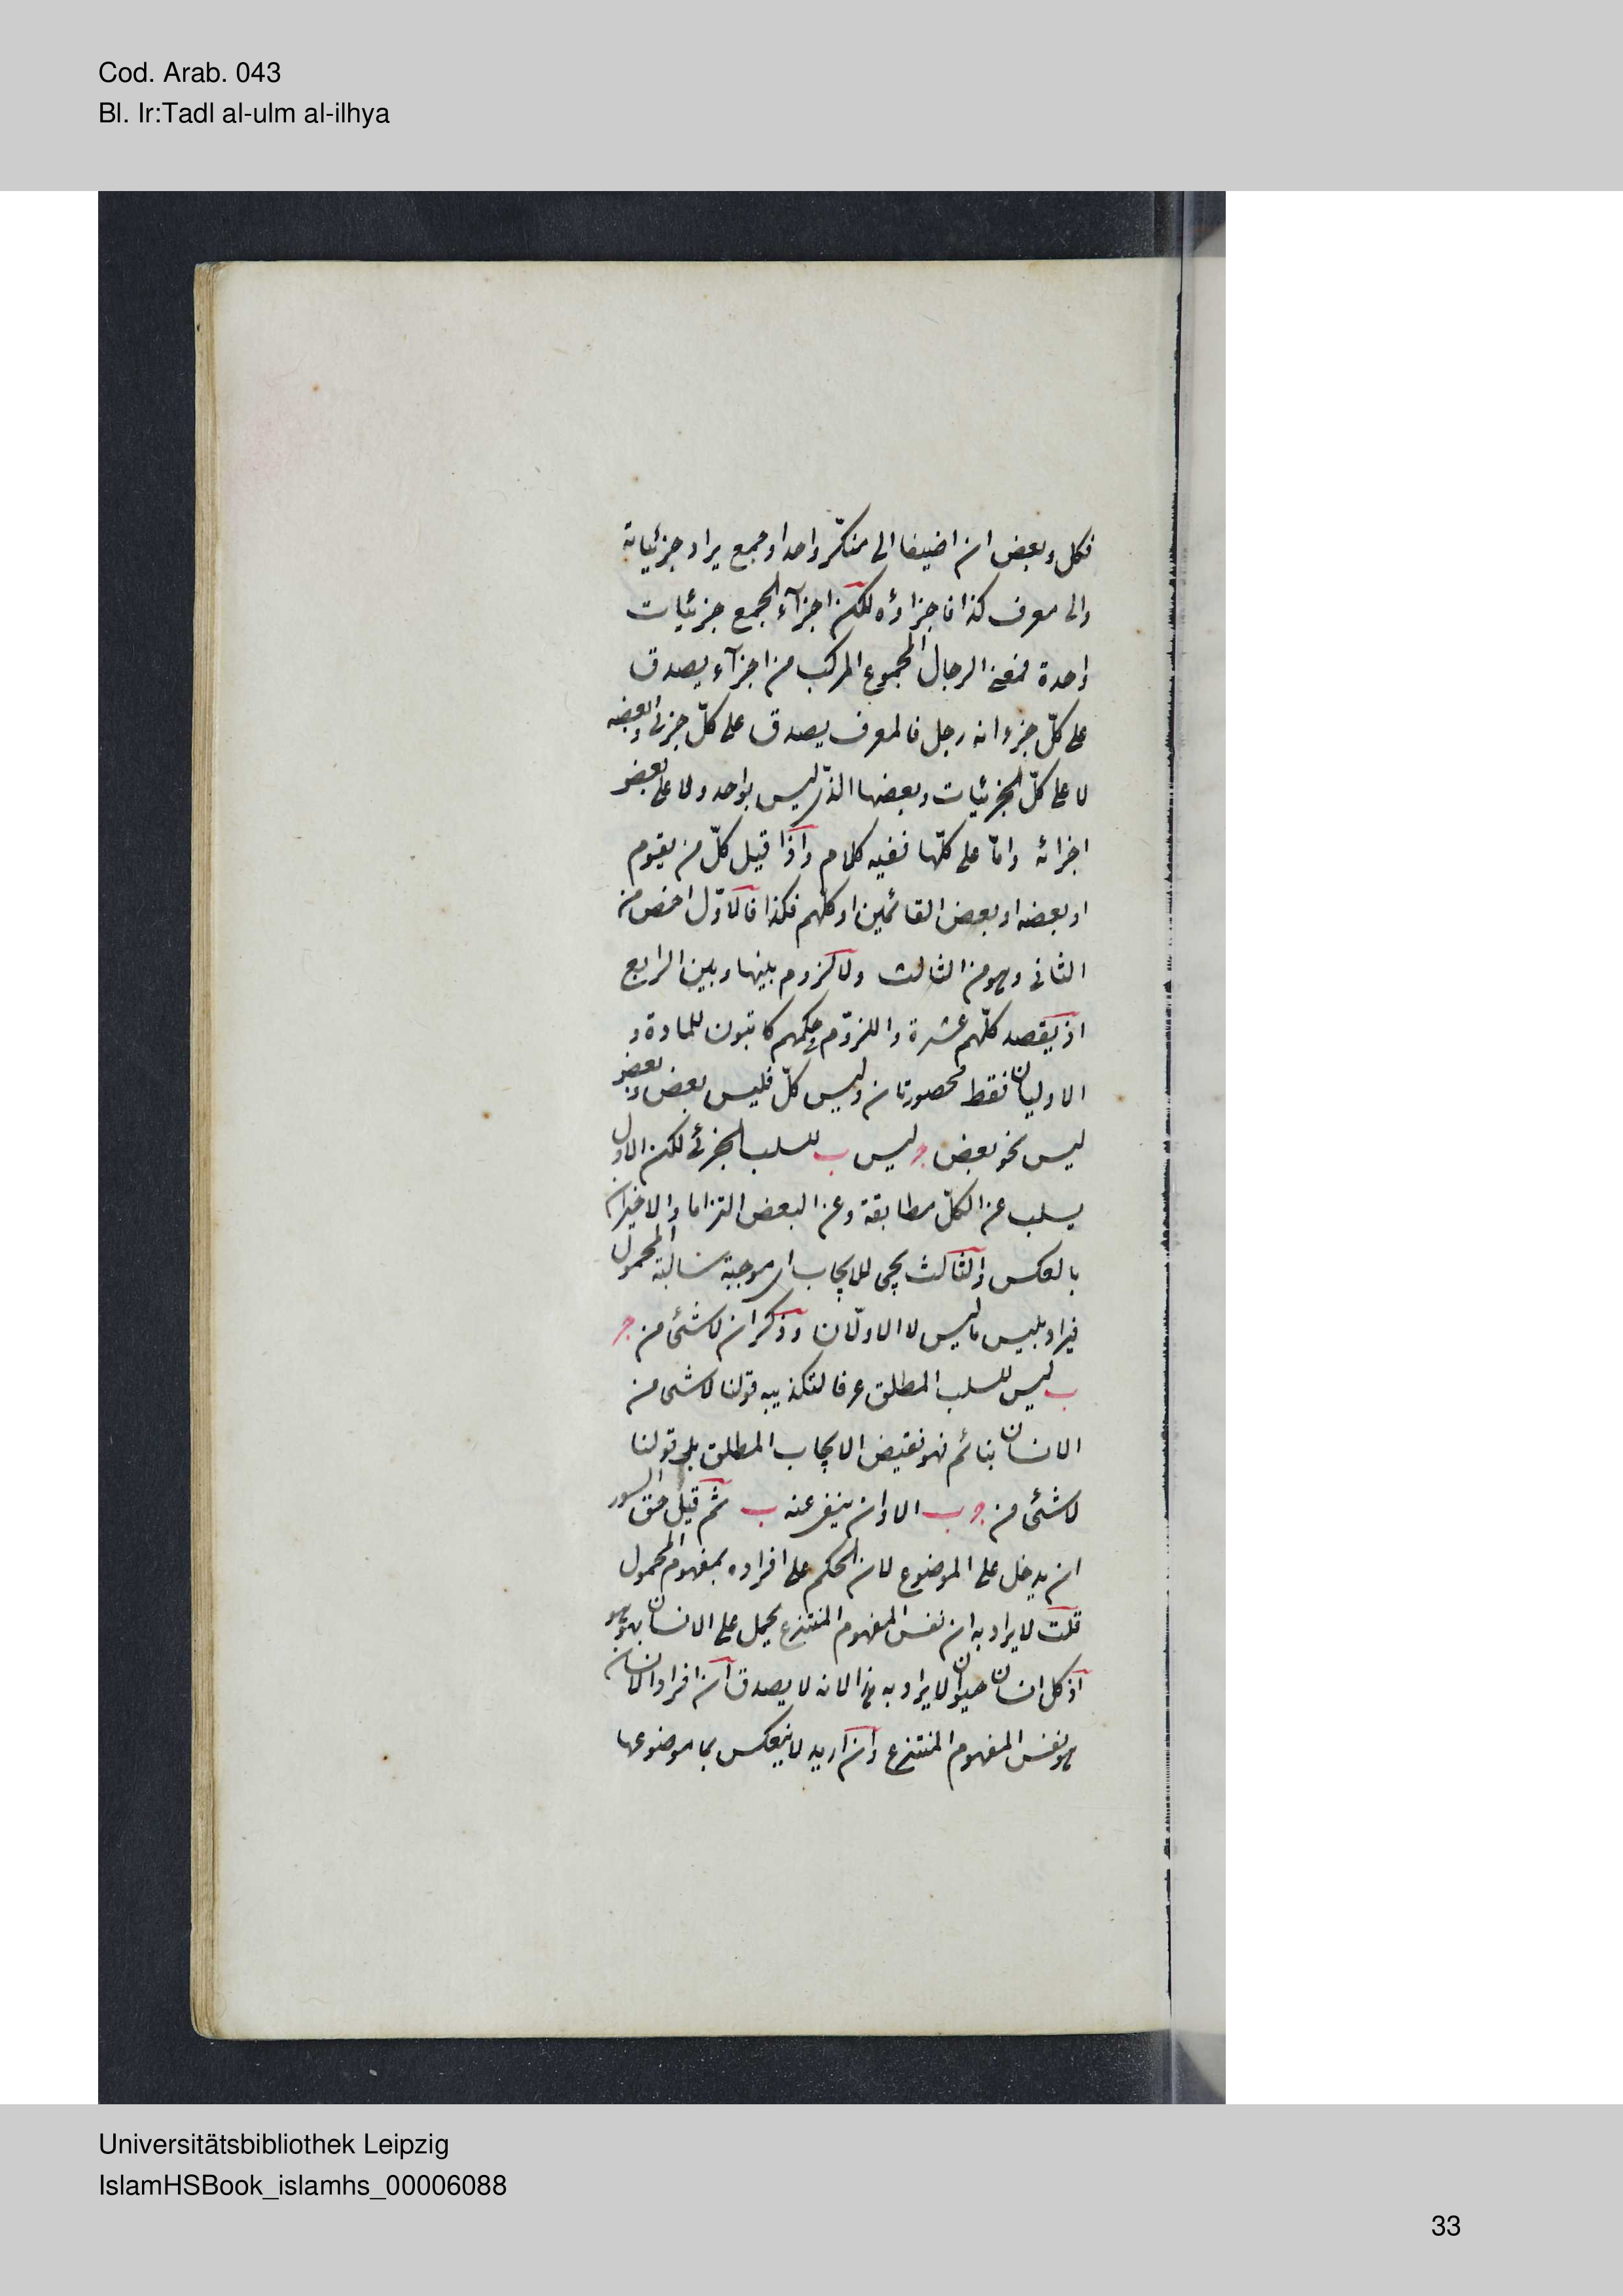 Cod. Arab. 043
Bl. Ir:Tadl al-ulm al-ilhya
فكل وبعض ان اضيفا الى منكّر واحد او جمع يراد جزئياته
والى معرف كذا فاجزاؤه لكن اجزآء الجمع جزئيات
واحدة فمعنى الرجال المجموع المركب من اجزآء يصدق
على كلّ جزء انه رجل فالمعرف يصدق على كلّ جزئى وبعضه
لا على كلّ الجزئيات وبعضها الذى ليس بواحد ولا على بعض
اجزائه وامّا على كلّها ففيه كلام واذا قيل كلّ من يقوم
او بعضه او بعض القائمين او كلّهم فكذا فالاوّل اخص من
الثانى وهو من الثالث ولا لزوم بينها وبين الرابع
اذ يقصد كلّهم عشرة واللزوم فى كلهم كاتبون للمادة و
الاوليان فقط محصورتان وليس كلّ فليس بعض وبعض
ليس نحو بعض ج ليس ب للسلب الجزئى لكن الاول
يسلب عن الكلّ مطابقة وعن البعض التزاما والاخيران
بالعكس والثالث يجى للايجاب اى موجبة سالبة المحمول
فيراد بليس ما ليس لا الاولان وذكر ان لا شئ من ج
ب ليس للسلب المطلق عرفا لتكذيبه قولنا لا شى من
الانسان بنائم فهو نقيض الايجاب المطلق بل قولنا
لا شئ من ج ب الا وان ينفى عنه ب ثم قيل حق السور
ان يدخل على الموضوع لان الحكم على افراده بمفهوم المحمول
قلت لا يراد به ان نفس المفهوم المنتزع يحمل على الانسان بهوهو
اذ كل انسان حيوان لا يراد به هذا لانه لا يصدق ان افراد الانسان
هو نفس المفهوم المنتزع وان اريد لا ينعكس بما موضوعها
Universitätsbibliothek Leipzig
IslamHSBook_islamhs_00006088
33